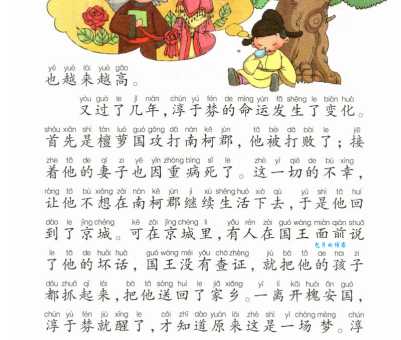 yě yuè lái yuè gāo
也越来越高。
yòu guò le jǐ nián chún yú fén de mìng yùn fā shēng le biàn huà
又过了几年,淳于棼的命运发生了变化。
shǒu xiān shì tán luó guó gōng dǎ nán kē jùn tā bèi dǎ bài le jiē
首先是檀萝国攻打南柯郡,他被打败了;接
zhe tā de qī zi yě yīn zhòng bìng sǐ le zhè yí qiè de bú xìng
着他的妻子也因重病死了。这一切的不幸,
ràng tā bù xiǎng zài nán kē jùn jì xù shēng huó xià qù yú shì tā huí
让他不想在南柯郡继续生活下去,于是他回
dào le jīng chéng kě zài jīng chéng lǐ yǒu rén zài guó wáng miàn qián shuō
到了京城。可在京城里,有人在国王面前说
le tā de huài huà guó wáng méi yǒu chá zhèng jiù bǎ tā de hái zi
了他的坏话,国王没有查证,就把他的孩子
dōu zhuā qǐ lái bǎ tā sòng huí le jiā xiāng yì lí kāi huái ān guó
都抓起来,把他送回了家乡。一离开槐安国,
chún yú fén jiù xǐng le cái zhī dào yuán lái zhè shì yì chǎng mèng chún
淳于棼就醒了,才知道原来这是一场梦。淳